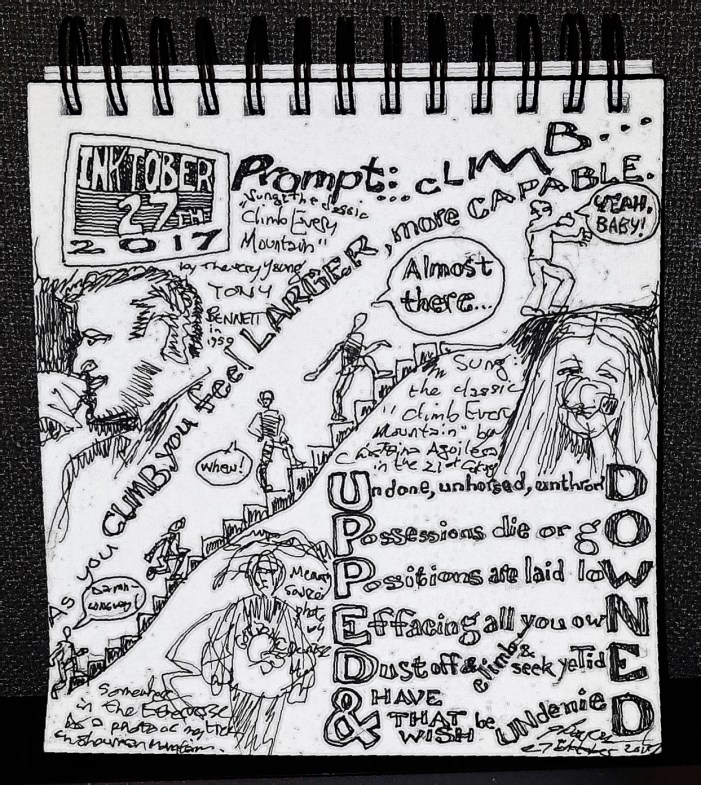 INKTOBER
27TH
2017
Prompt: ...CLIMB...
Sung the classic
"Climb Every
Mountain"
by The very young
TONY
BENNETT
in
1959
As you CLIMB you feel LARGER, more CAPABLE.
YEAH,
BABY!
Almost
there...
When!
Damn
Sung
the classic
"Climb Every
Mountain" by
Christina Aguilera
in the 21st
Undone, unhorsed, unthroneD
Possessions die or gO
Positions are laid loW
Effacing all you owN
Dust off & climb & seek ye TidE
& HAVE
THAT
WISH be UndenieD
Somewhere
in the
as a photo of my